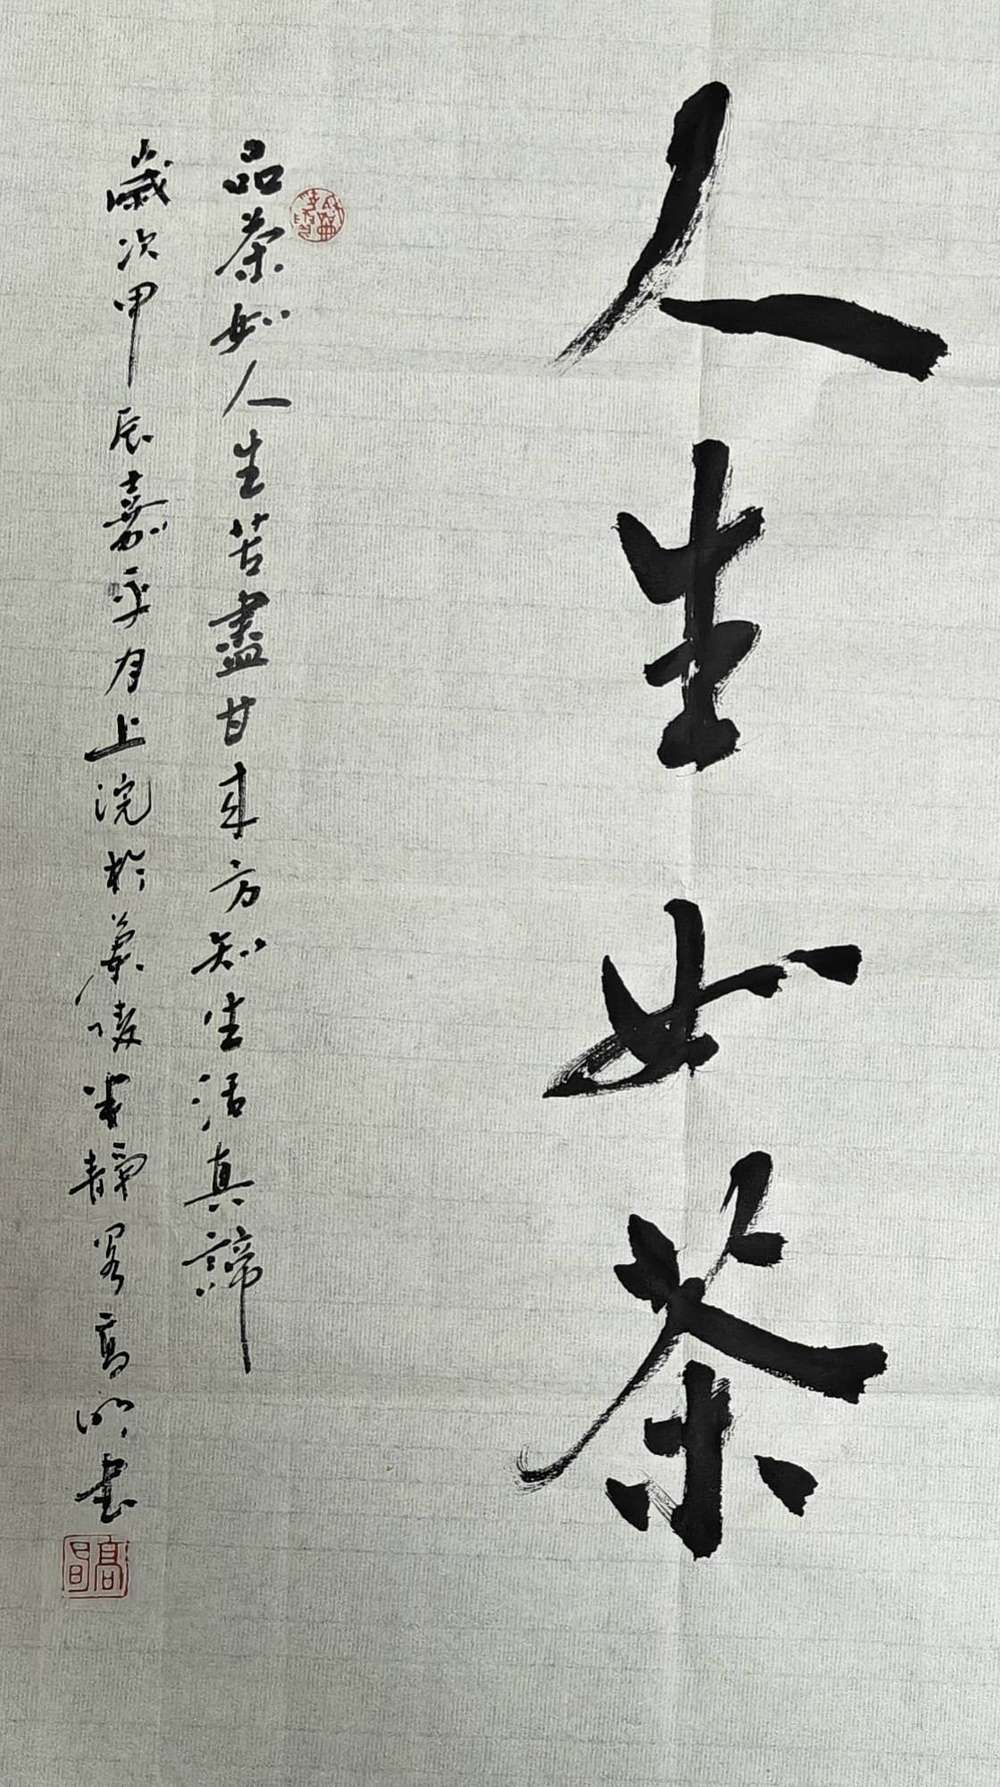 人生如茶
品茶如人生苦盡甘来方知生活真諦
歲次甲辰嘉平月上浣於蘭陵半靜閣高明書